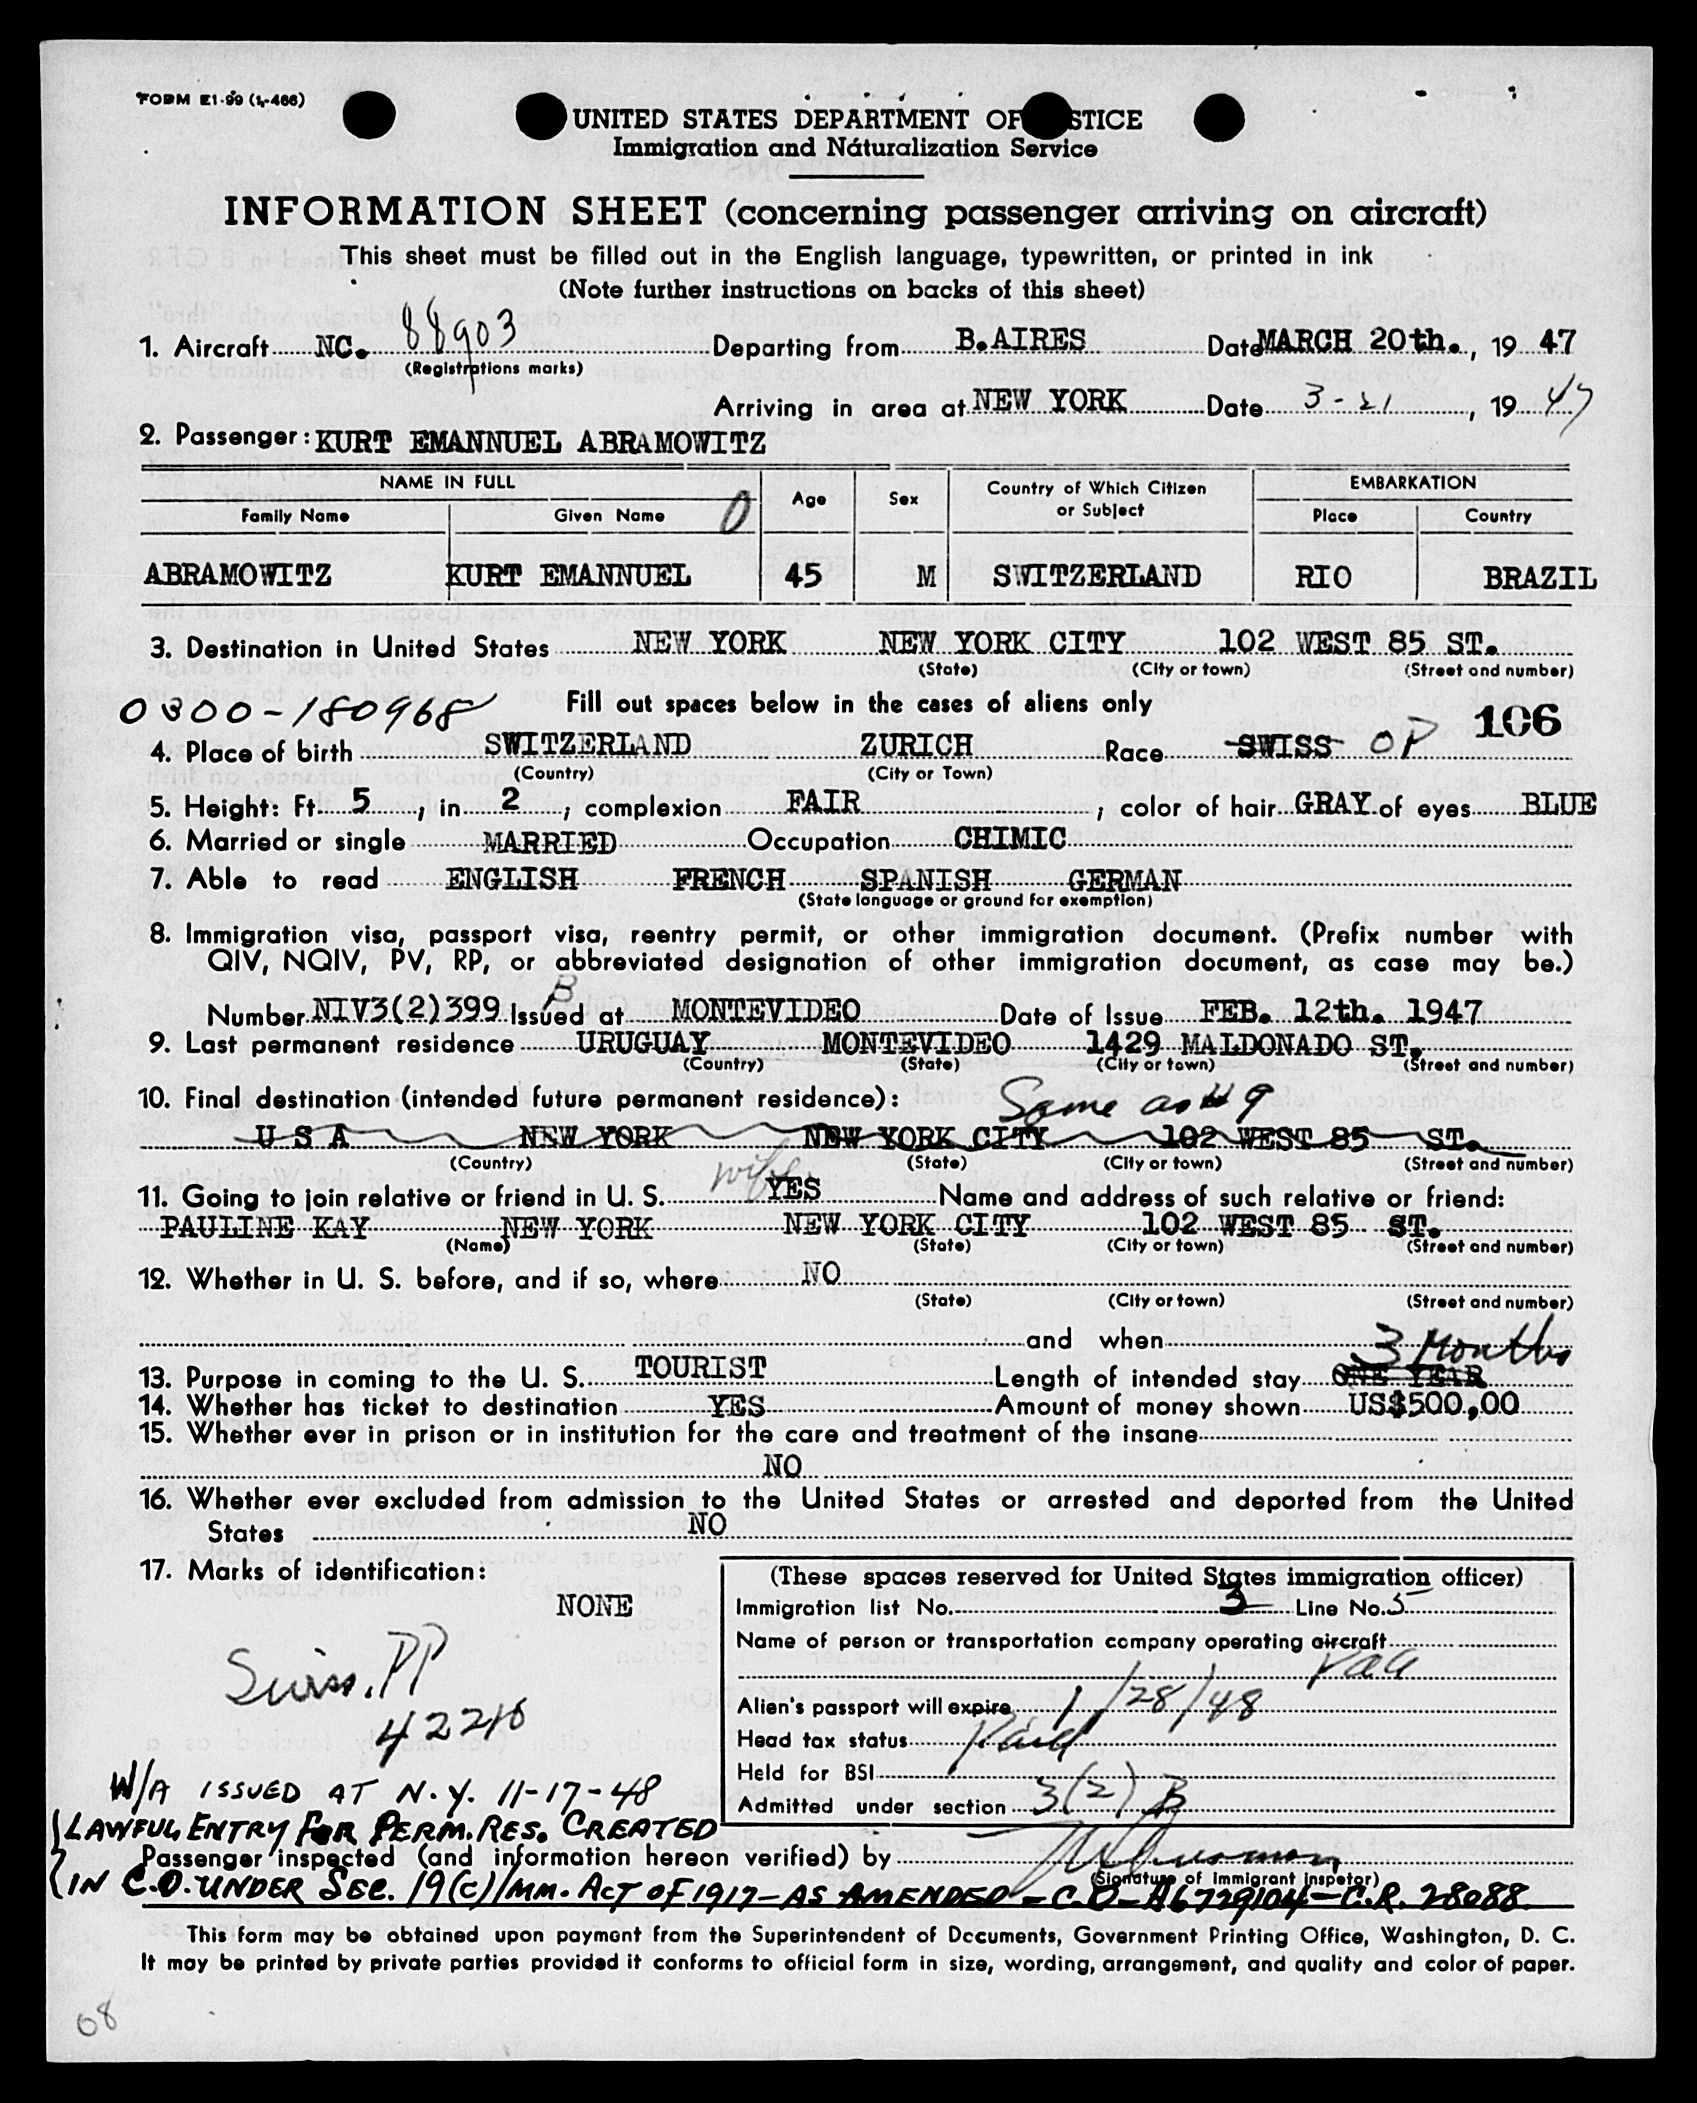 FORM E1-99 (1-466)
UNITED STATES DEPARTMENT OF STICE
Immigration and Naturalization Service
INFORMATION SHEET (concerning passenger arriving on aircraft)
This sheet must be filled out in the English language, typewritten, or printed in ink
(Note further instructions on backs of this sheet)
1. Aircraft NC. 88903 Departing from B.AIRES Date MARCH 20th., 19 47
(Registrations marks)
Arriving in area at NEW YORK Date 3-21, 19 47
2. Passenger: KURT EMANNUEL ABRAMOWITZ
NAME IN FULL Age Sex Country of Which Citizen or Subject EMBARKATION
Family Name Given Name 0 Place Country
ABRAMOWITZ KURT EMANNUEL 45 M SWITZERLAND RIO BRAZIL
3. Destination in United States NEW YORK NEW YORK CITY 102 WEST 85 ST.
(State) (City or town) (Street and number)
0300-180968 Fill out spaces below in the cases of aliens only 106
4. Place of birth SWITZERLAND ZURICH Race SWISS OP
(Country) (City or Town)
5. Height: Ft. 5, in. 2; complexion FAIR; color of hair GRAY of eyes BLUE
6. Married or single MARRIED Occupation CHIMIC
7. Able to read ENGLISH FRENCH SPANISH GERMAN
(State language or ground for exemption)
8. Immigration visa, passport visa, reentry permit, or other immigration document. (Prefix number with
QIV, NQIV, PV, RP, or abbreviated designation of other immigration document, as case may be.)
B
Number NIV3(2)399 Issued at MONTEVIDEO Date of Issue FEB. 12th. 1947
9. Last permanent residence URUGUAY MONTEVIDEO 1429 MALDONADO ST.
(Country) (State) (City or town) (Street and number)
10. Final destination (intended future permanent residence): Same as # 9
U S A NEW YORK NEW YORK CITY 102 WEST 85 ST.
(Country) (State) (City or town) (Street and number)
11. Going to join relative or friend in U. S. wife YES Name and address of such relative or friend:
PAULINE KAY NEW YORK NEW YORK CITY 102 WEST 85 ST.
(Name) (State) (City or town) (Street and number)
12. Whether in U. S. before, and if so, where NO
(State) (City or town) (Street and number)
and when
3 Months
13. Purpose in coming to the U. S. TOURIST Length of intended stay ONE YEAR
14. Whether has ticket to destination YES Amount of money shown US$500,00
15. Whether ever in prison or in institution for the care and treatment of the insane
NO
16. Whether ever excluded from admission to the United States or arrested and deported from the United
States NO
17. Marks of identification:
NONE
Swiss. PP
42216
(These spaces reserved for United States immigration officer)
Immigration list No. 3 Line No. 5
Name of person or transportation company operating aircraft
PAA
Alien's passport will expire 1/28/48
Head tax status Paid
Held for BSI
Admitted under section 3(2) B
W/A ISSUED AT N.Y. 11-17-48
LAWFUL ENTRY FOR PERM. RES. CREATED
Passenger inspected (and information hereon verified) by
(Signature of Immigrant Inspetor)
IN C.O. UNDER SEC. 19(c) IMM. ACT OF 1917-AS AMENDED - C.O-A6729104-C.R. 28088.
This form may be obtained upon payment from the Superintendent of Documents, Government Printing Office, Washington, D. C.
It may be printed by private parties provided it conforms to official form in size, wording, arrangement, and quality and color of paper.
08